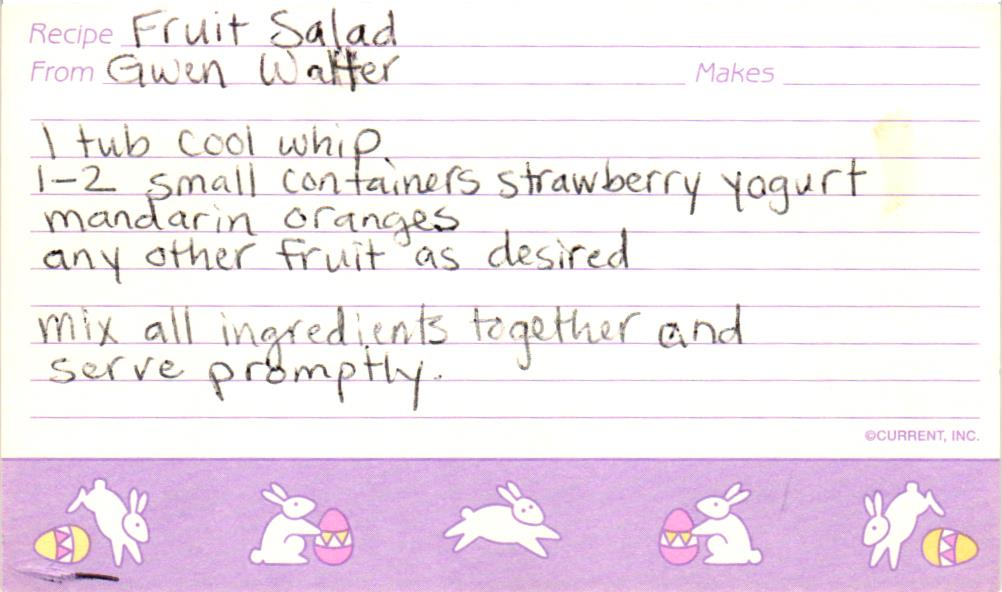 Recipe Fruit Salad
From Gwen Walter Makes
1 tub cool whip
1-2 small containers strawberry yogurt
mandarin oranges
any other fruit as desired
mix all ingredients together and
serve promptly.
©CURRENT, INC.